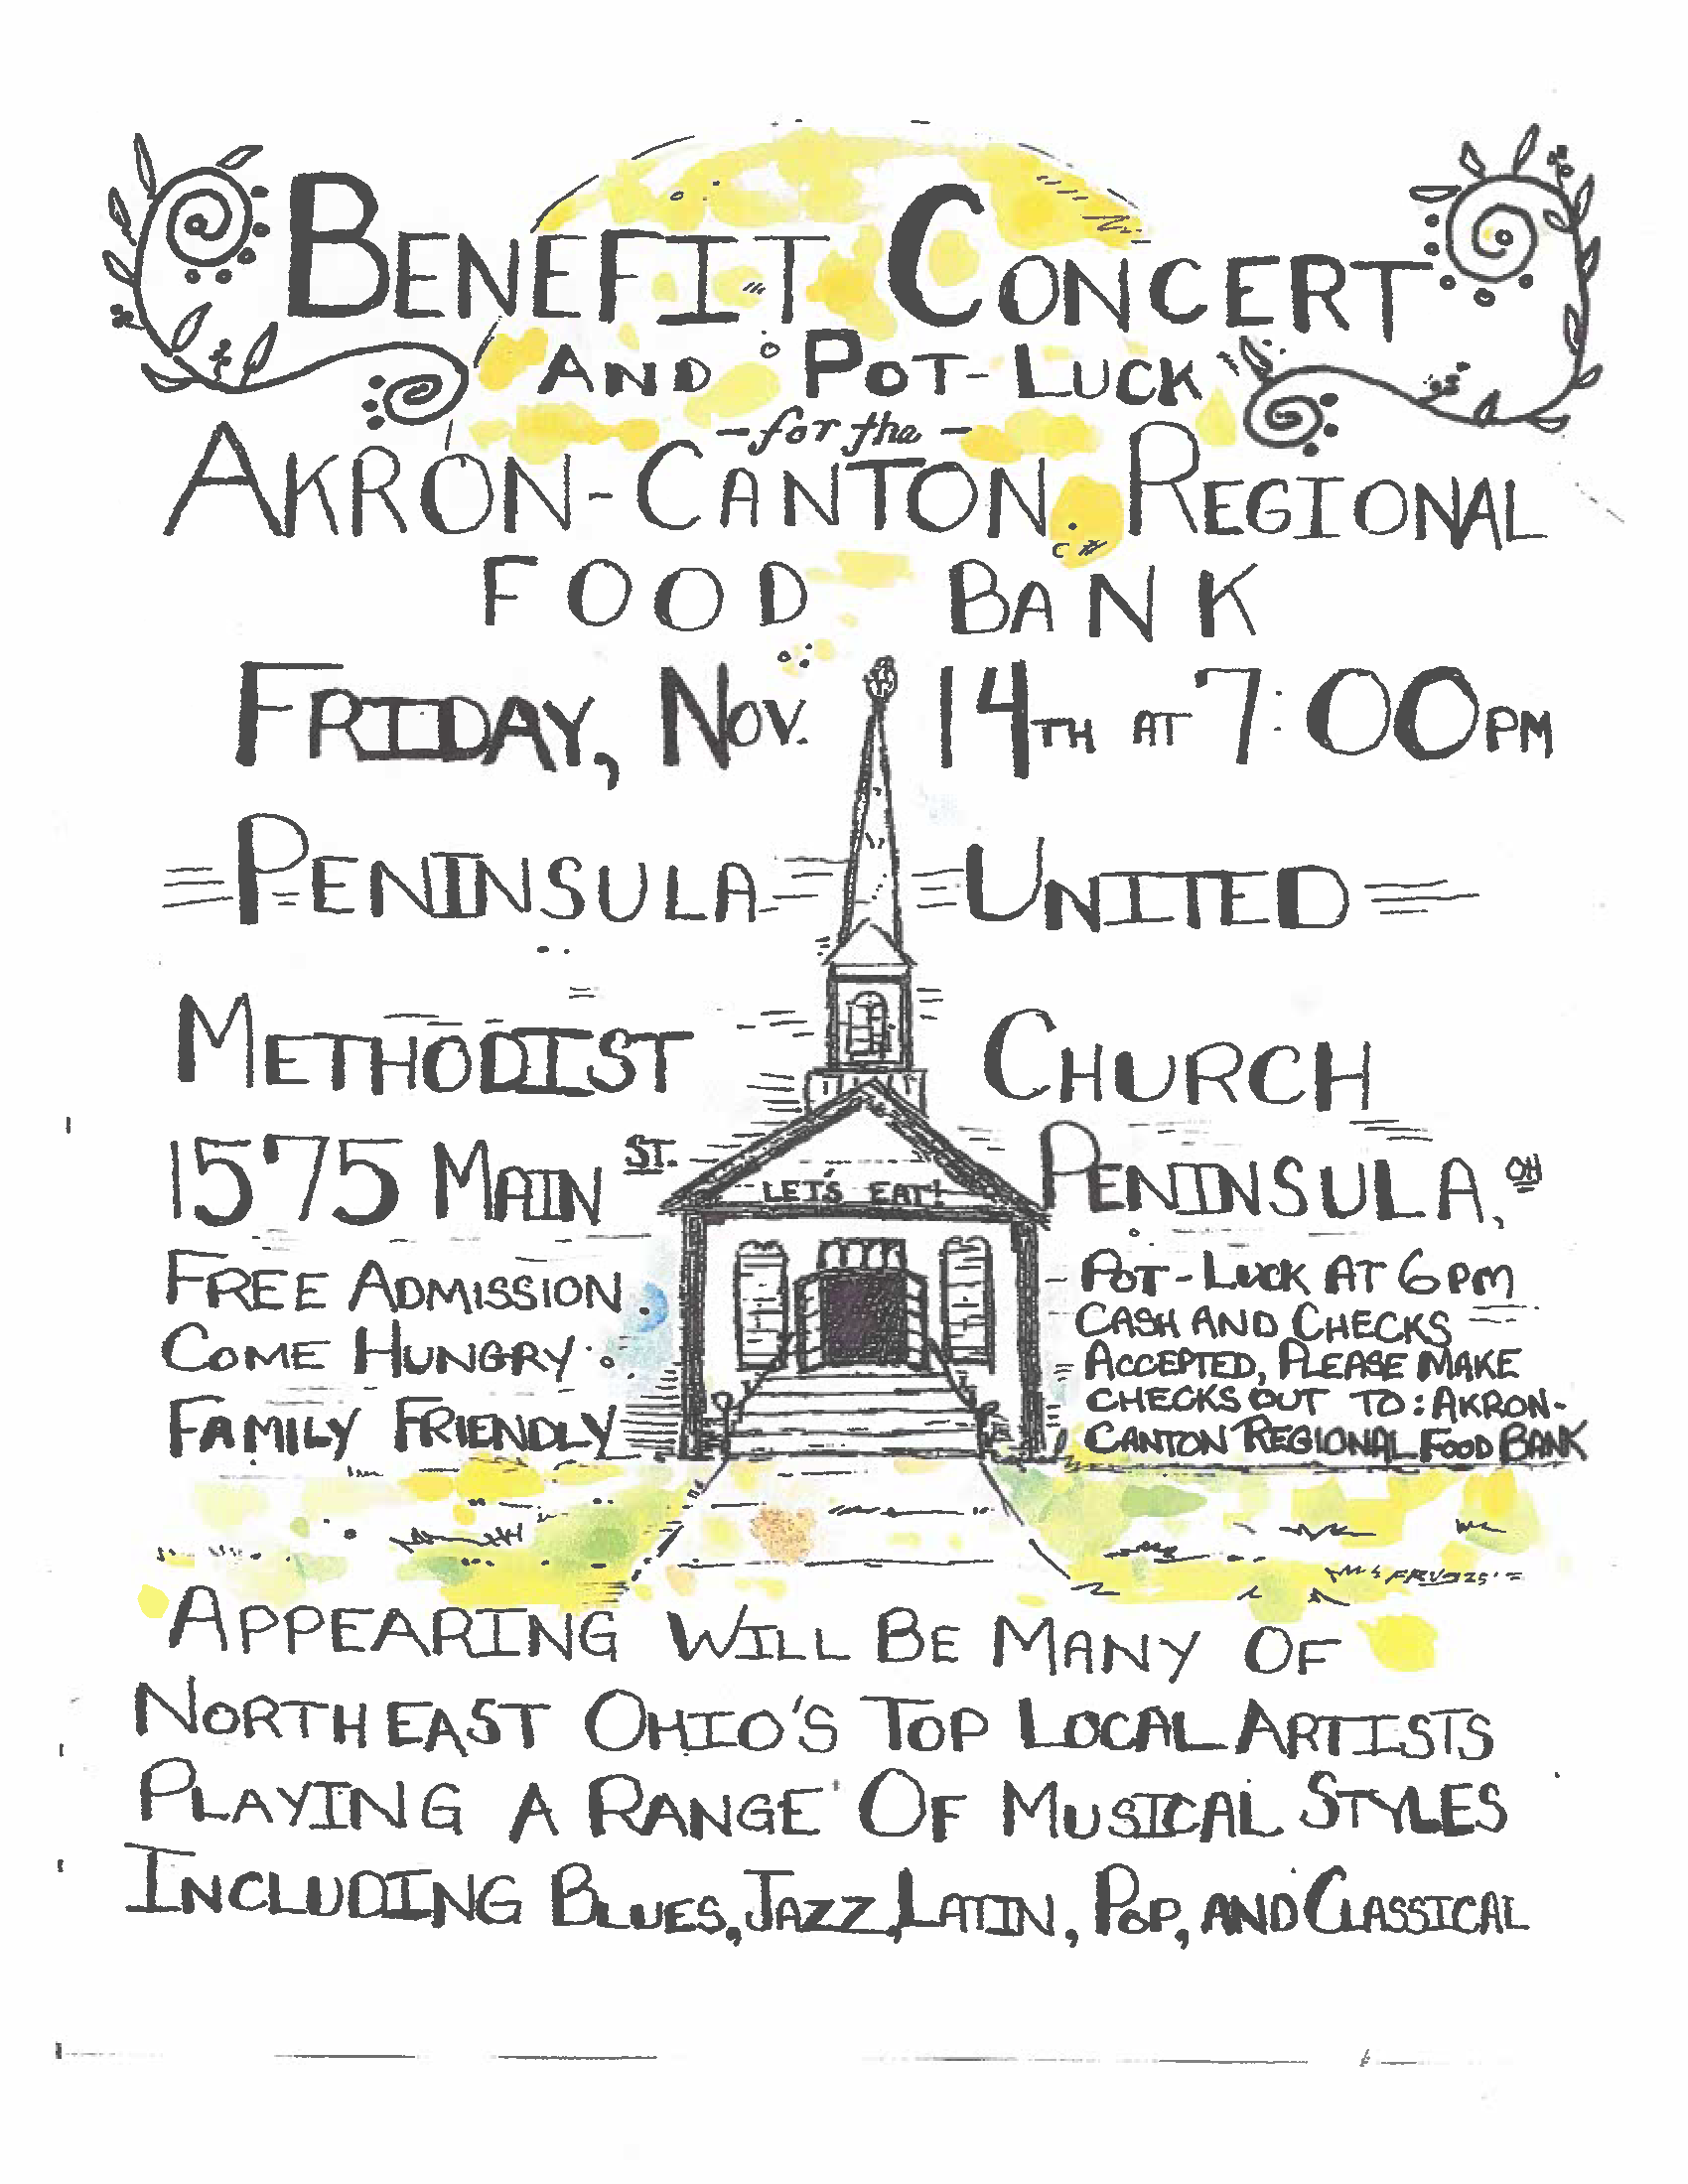 BENEFIT CONCERT
AND POT-LUCK
-for the-
AKRON-CANTON REGIONAL
FOOD BANK
FRIDAY, NOV. 14TH AT 7:00PM
PENINSULA UNITED
METHODIST CHURCH
1575 MAIN ST. PENINSULA, OH
LET'S EAT!
FREE ADMISSION
COME HUNGRY
FAMILY FRIENDLY
POT-LUCK AT 6PM
CASH AND CHECKS
ACCEPTED, PLEASE MAKE
CHECKS OUT TO: AKRON-
CANTON REGIONAL FOOD BANK
APPEARING WILL BE MANY OF
NORTHEAST OHIO'S TOP LOCAL ARTISTS
PLAYING A RANGE OF MUSICAL STYLES
INCLUDING BLUES, JAZZ, LATIN, POP, AND CLASSICAL